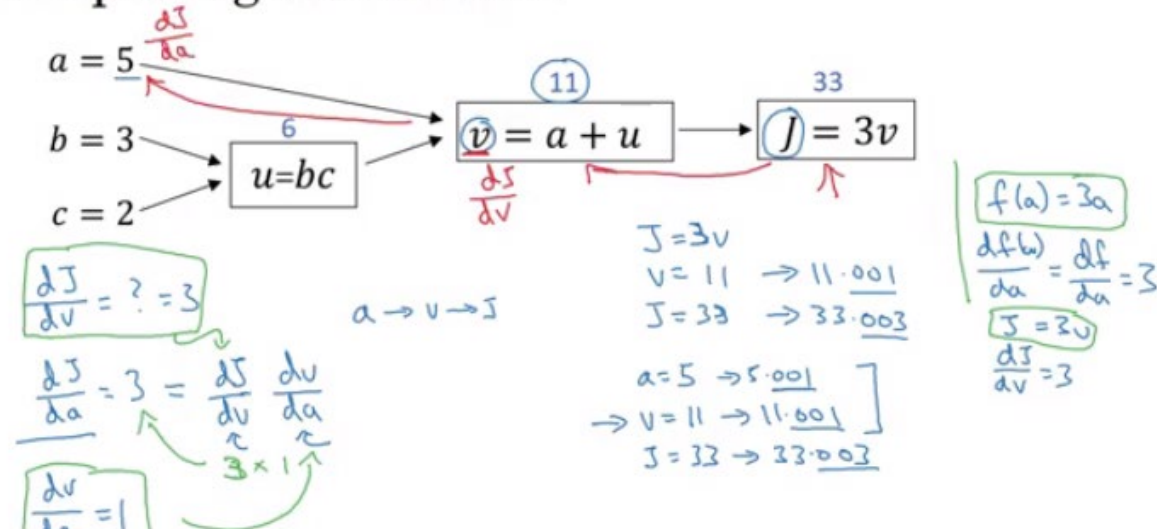 dJ/da
a = 5
b = 3
c = 2
6
u=bc
11
v = a + u
dJ/dv
33
J = 3v
dJ/dv = ? = 3
a → v → J
dJ/da = 3 = dJ/dv dv/da
3 × 1
dv/da = 1
J = 3v
v = 11 → 11.001
J = 33 → 33.003
a = 5 → 5.001
→ v = 11 → 11.001
J = 33 → 33.003
f(a) = 3a
df(a)/da = df/da = 3
J = 3v
dJ/dv = 3